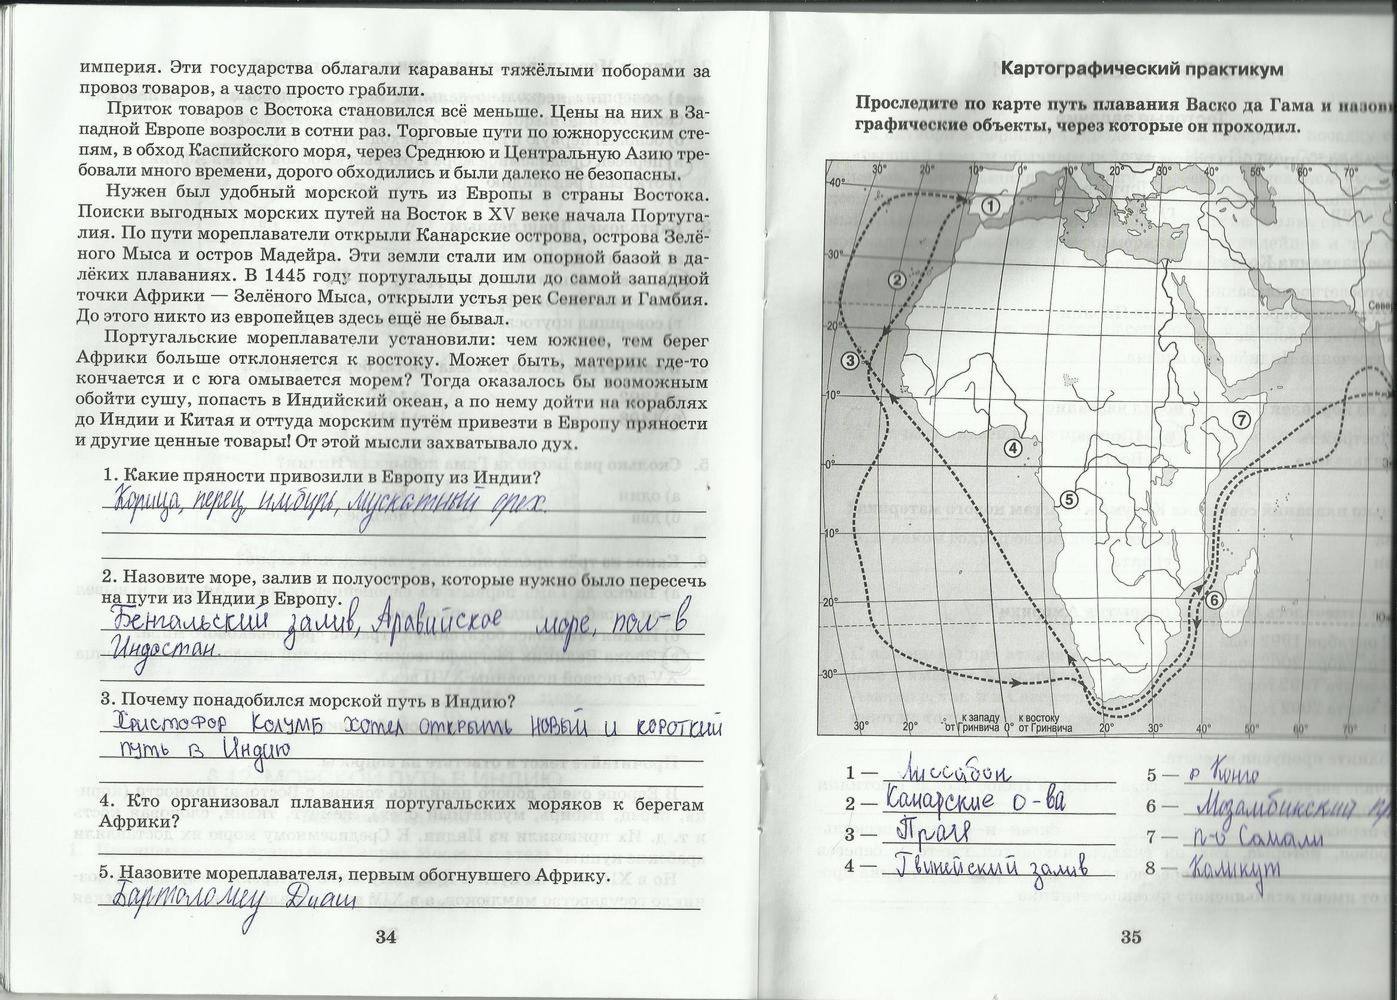 империя. Эти государства облагали караваны тяжёлыми поборами за
провоз товаров, а часто просто грабили.
Приток товаров с Востока становился всё меньше. Цены на них в За-
падной Европе возросли в сотни раз. Торговые пути по южнорусским сте-
пям, в обход Каспийского моря, через Среднюю и Центральную Азию тре-
бовали много времени, дорого обходились и были далеко не безопасны.
Нужен был удобный морской путь из Европы в страны Востока.
Поиски выгодных морских путей на Восток в XV веке начала Португа-
лия. По пути мореплаватели открыли Канарские острова, острова Зелё-
ного Мыса и остров Мадейра. Эти земли стали им опорной базой в да-
лёких плаваниях. В 1445 году португальцы дошли до самой западной
точки Африки — Зелёного Мыса, открыли устья рек Сенегал и Гамбия.
До этого никто из европейцев здесь ещё не бывал.
Португальские мореплаватели установили: чем южнее, тем берег
Африки больше отклоняется к востоку. Может быть, материк где-то
кончается и с юга омывается морем? Тогда оказалось бы возможным
обойти сушу, попасть в Индийский океан, а по нему дойти на кораблях
до Индии и Китая и оттуда морским путём привезти в Европу пряности
и другие ценные товары! От этой мысли захватывало дух.
1. Какие пряности привозили в Европу из Индии?
Корица, перец, имбирь, мускатный орех.
2. Назовите море, залив и полуостров, которые нужно было пересечь
на пути из Индии в Европу.
Бенгальский залив, Аравийское море, пол-в
Индостан.
3. Почему понадобился морской путь в Индию?
Христофор Колумб хотел открыть новый и короткий
путь в Индию
4. Кто организовал плавания португальских моряков к берегам
Африки?
5. Назовите мореплавателя, первым обогнувшего Африку.
Бартоломеу Диаш
34
Картографический практикум
Проследите по карте путь плавания Васко да Гама и назови
графические объекты, через которые он проходил.
40° 30° 20° 10° 0° 10° 20° 30° 40° 50° 60° 70°
1
30°
2
Севе
20°
3
10°
7
4
0°
5
10°
20°
6
Ю
30°
30° 20° к западу от Гринвича 0° к востоку от Гринвича 20° 30° 40° 50° 60° 70°
1 — Лиссабон
2 — Канарские о-ва
3 — Прая
4 — Гвинейский залив
5 — р Конго
6 — Мозамбикский пр
7 — п-в Сомали
8 — Каликут
35